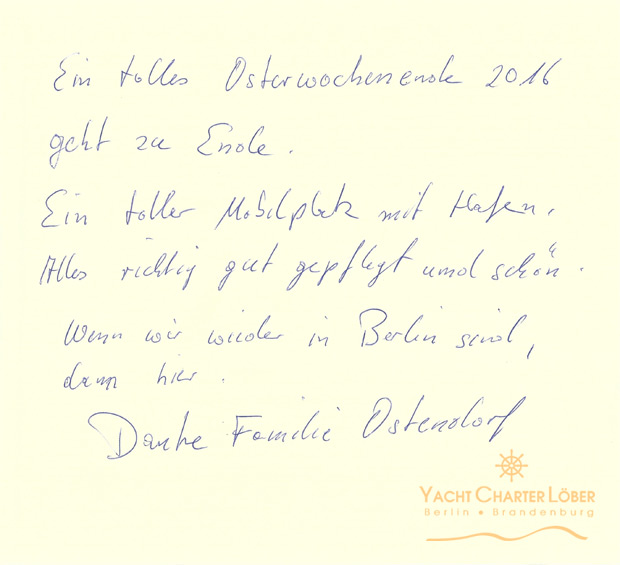 Ein tolles Osterwochenende 2016
geht zu Ende.
Ein toller Mobilplatz mit Hafen.
Alles richtig gut gepflegt und schön.
Wenn wir wieder in Berlin sind,
dann hier.
Danke Familie Ostendorf
YACHT CHARTER LÖBER
Berlin • Brandenburg